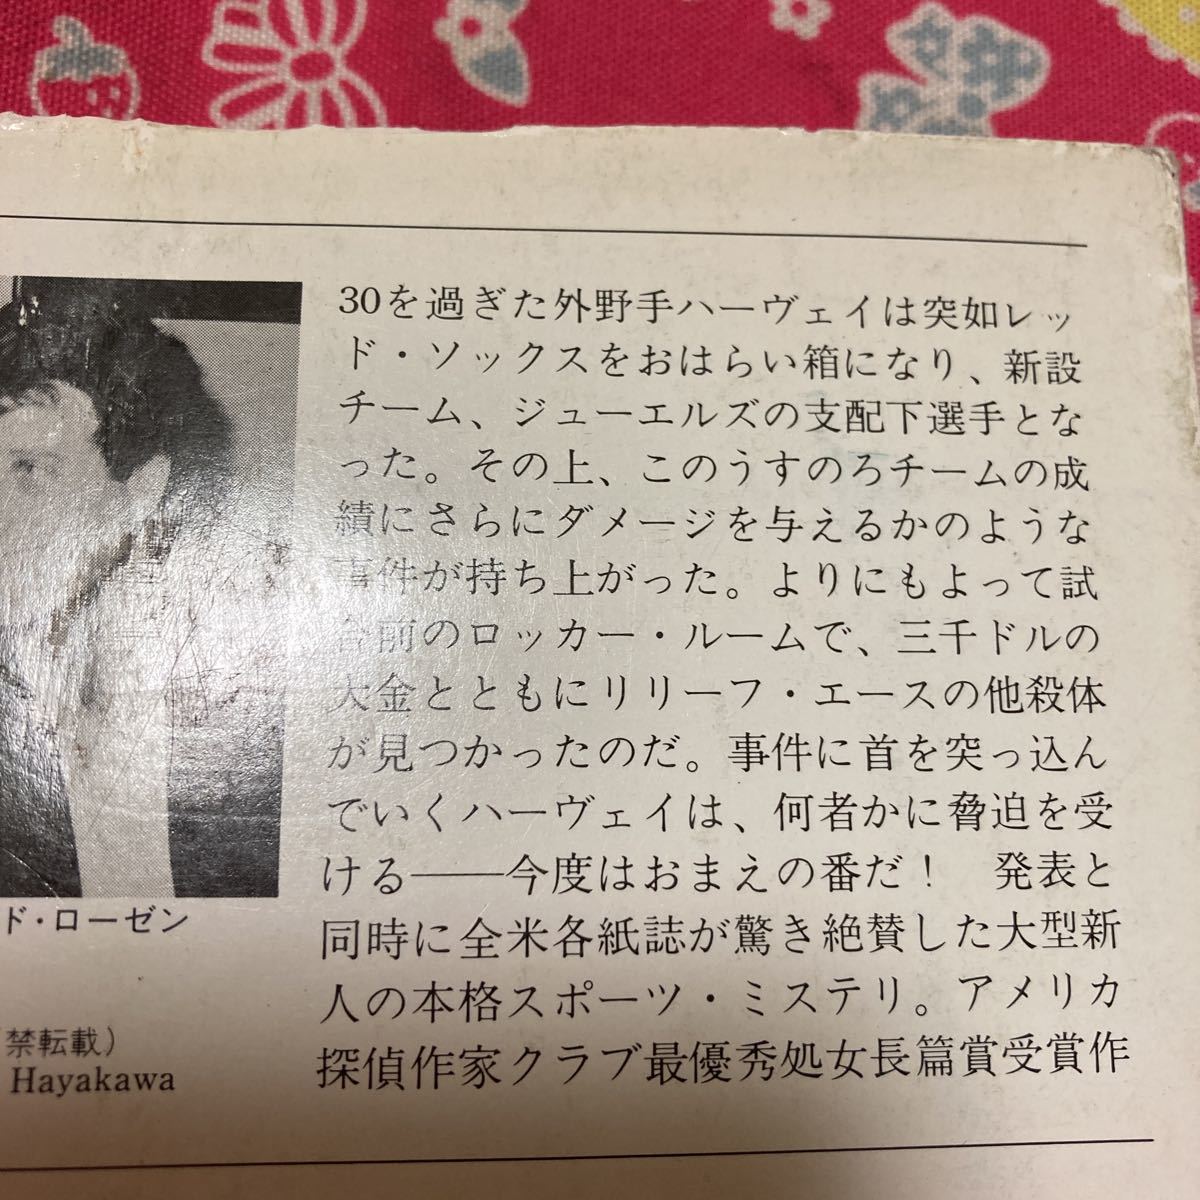 30を過ぎた外野手ハーヴェイは突如レッ
ド・ソックスをおはらい箱になり、新設
チーム、ジューエルズの支配下選手とな
った。その上、このうすのろチームの成
績にさらにダメージを与えるかのような
事件が持ち上がった。よりにもよって試
合前のロッカー・ルームで、三千ドルの
大金とともにリリーフ・エースの他殺体
が見つかったのだ。事件に首を突っ込ん
でいくハーヴェイは、何者かに脅迫を受
ける——今度はおまえの番だ！　発表と
同時に全米各紙誌が驚き絶賛した大型新
人の本格スポーツ・ミステリ。アメリカ
探偵作家クラブ最優秀処女長篇賞受賞作
ド・ローゼン
禁転載）
Hayakawa